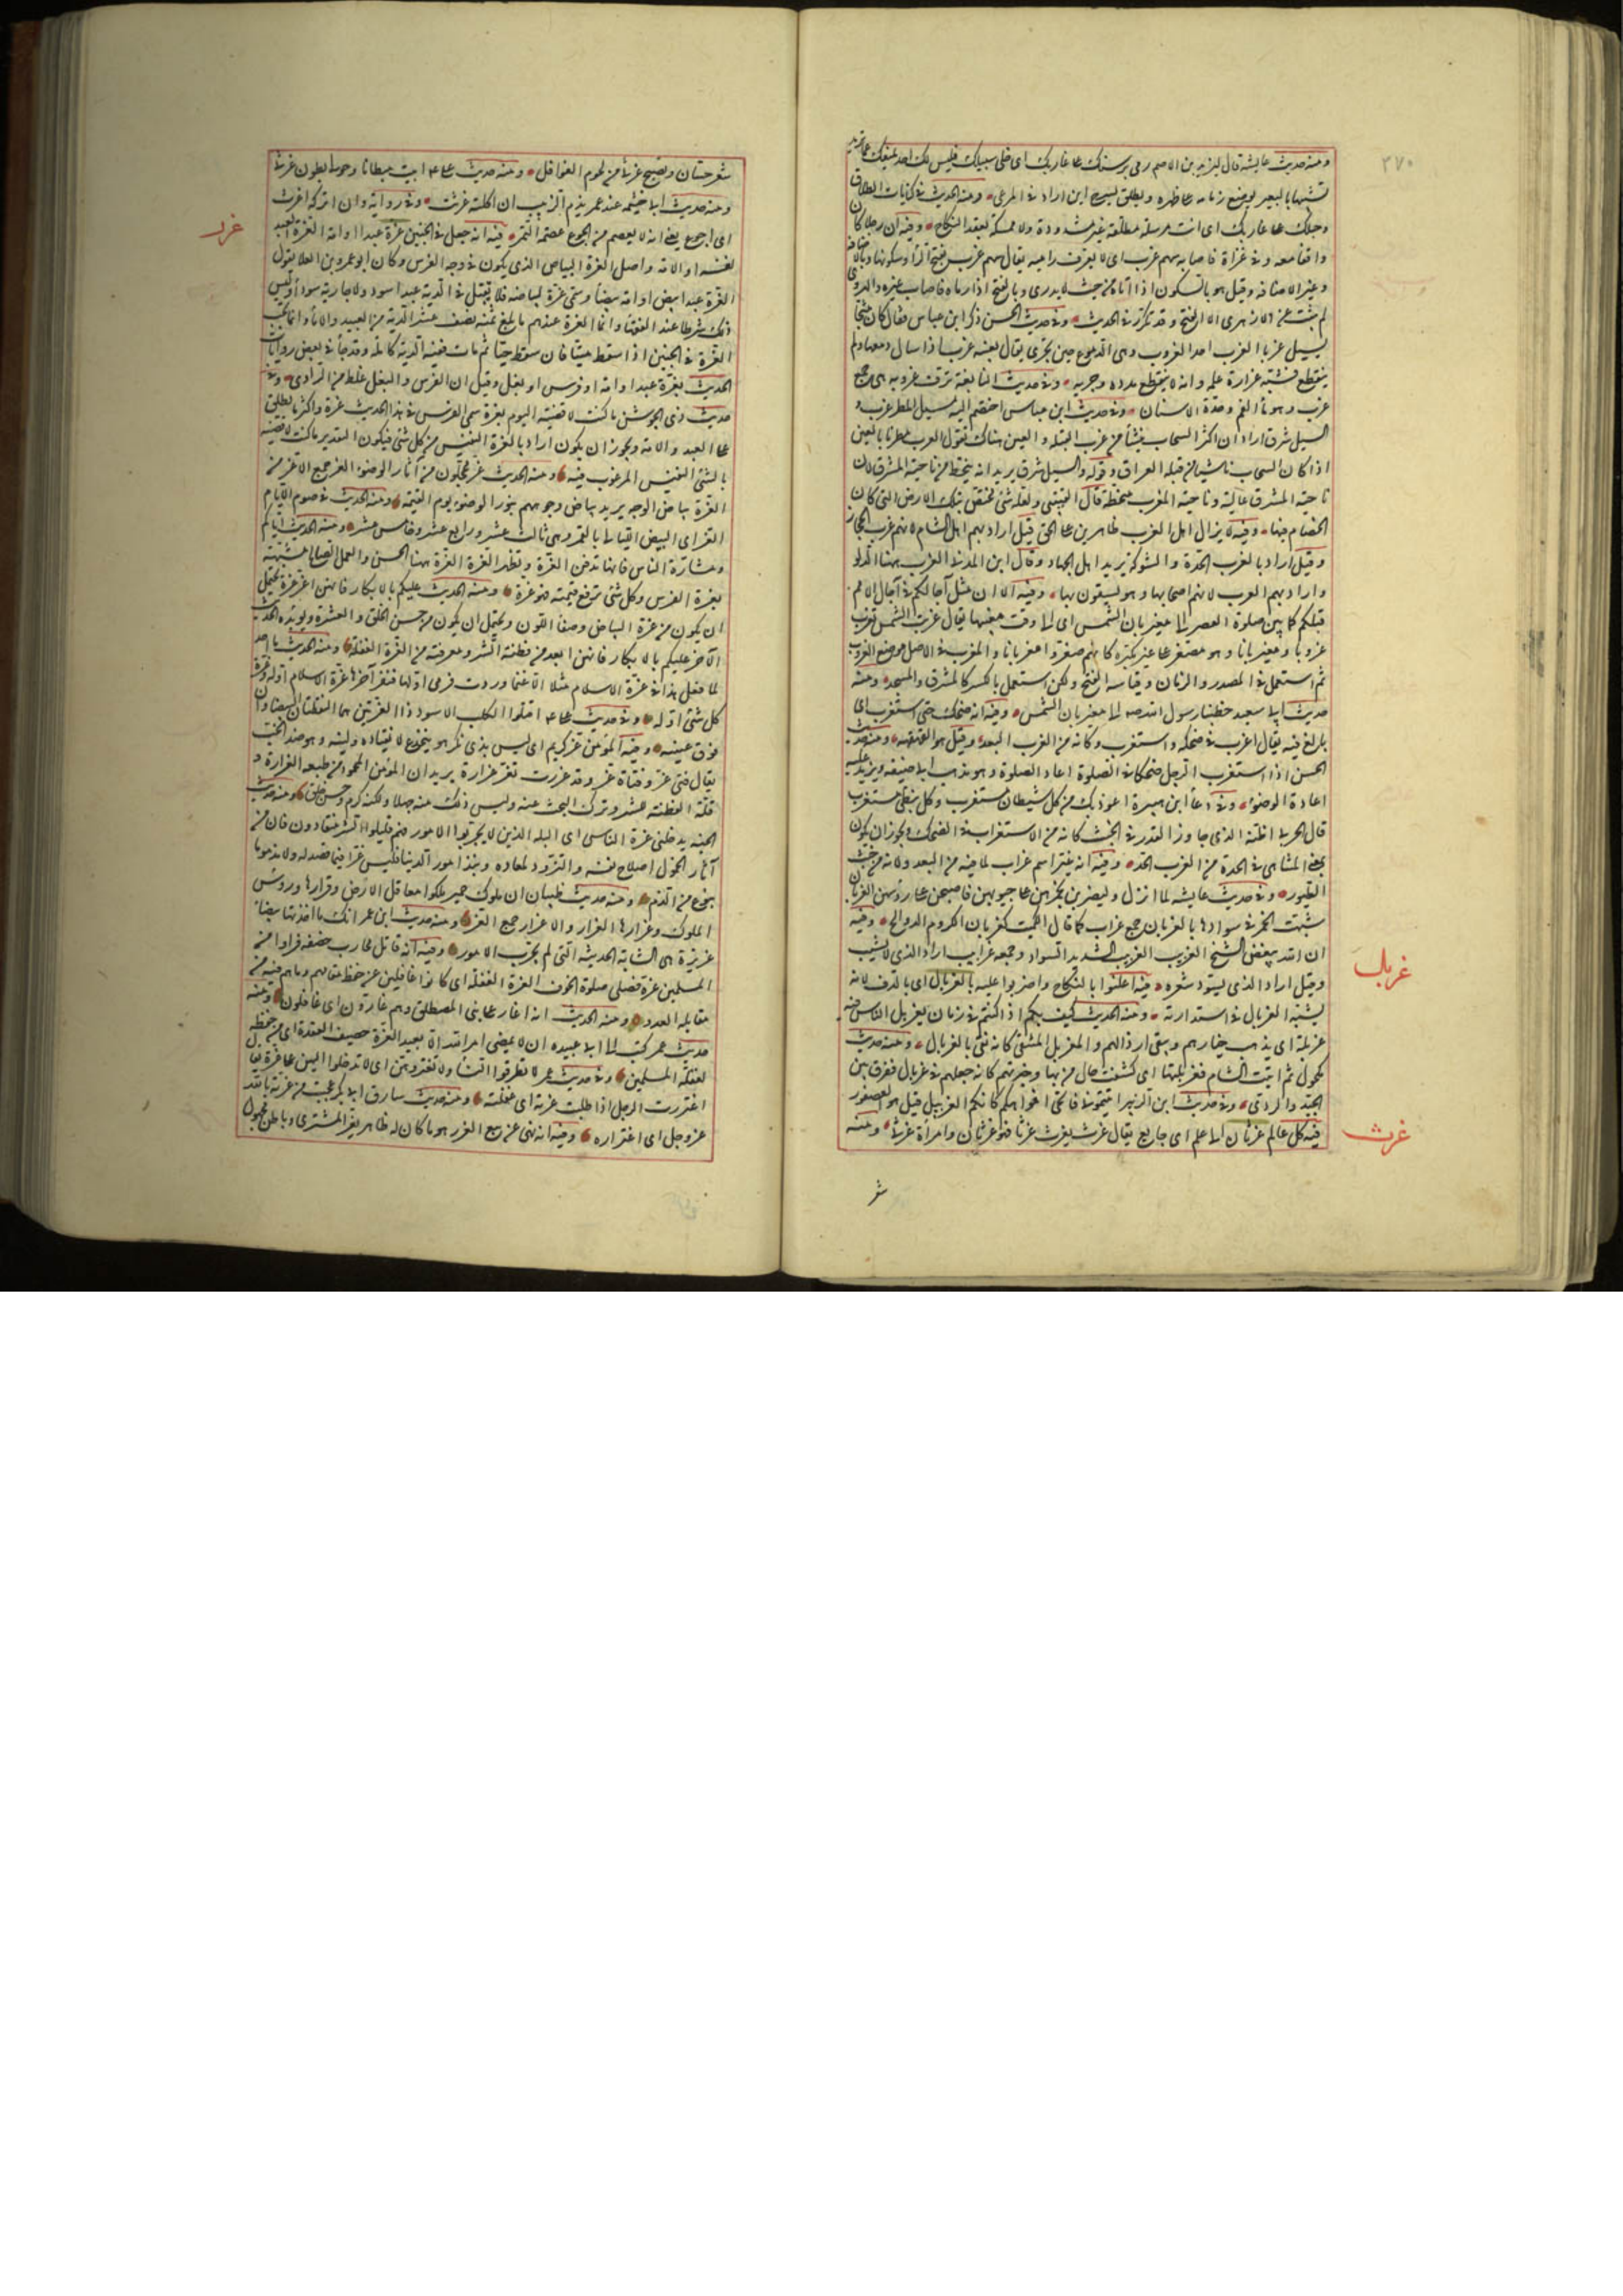 ٢٧٠
ومنه حديث عايشة قال ليزيد بن الاصم رمى برسنك على غاربك اى خلى سبيلك فليس لك احد يمنعك عما تريد
تشبيها بالبعير يوضع زمامه على ظهره ويطلق يسرح اين اراد فى المرعى ومنه الحديث فى كنايات الطلاق
وحبلك على غاربك اى انت مرسلة مطلقة غير مشدودة ولا ممسكة بعقد النكاح وفيه ان رجلا كان
واقفا معه فى غزاة فاصابه سهم غرب اى لا يعرف راميه يقال سهم غرب بفتح الراء وسكونها وبالاضافة
وغير الاضافة وقيل هو بالسكون اذا اتاه من حيث لا يدرى وبالفتح اذا رماه فاصاب غيره والهروى
لم يثبت عن الازهرى الا الفتح وقد تكرر فى الحديث وفى حديث الحسن ذكر ابن عباس فقال كان مثجا
يسيل غربا الغرب احد الغروب وهى الدموع حين تجرى يقال بعينه غرب اذا سال دمعها ولم
ينقطع فشبه به غزارة علمه وانه لا ينقطع مدده وجريه وفى حديث النابغة ترف غروبه هى جمع
غرب وهو ماء الفم وحدة الاسنان وفى حديث ابن عباس اختصم اليه فى مسيل المطر غرب و
السيل شرق اراد ان اكثر السحاب ينشأ من غرب القبلة والعين هناك تقول العرب مطرنا بالعين
اذا كان السحاب ناشيا من قبلة العراق وقوله والسيل شرق يريد انه ينحط من ناحية المشرق لان
ناحية المشرق عالية وناحية المغرب منحطة قال القتيبى ولعله شئ يختص بتلك الارض التى كان
الخصام فيها وفيه لا يزال اهل الغرب ظاهرين على الحق قيل اراد بهم اهل الشام لانهم غرب الحجاز
وقيل اراد بالغرب الحدة والشوكة يريد اهل الجهاد وقال ابن المدينى الغرب ههنا الدلو
واراد بهم العرب لانهم اصحابها وهم يستقون بها وفيه الا ان مثل آجالكم فى آجال الامم
قبلكم كما بين صلوة العصر الى مغيربان الشمس اى الى وقت مغيبها يقال غربت الشمس تغرب
غروبا ومغيربانا وهو مصغر على غير مكبره كانهم صغروا مغربانا والمغرب فى الاصل موضع الغروب
ثم استعمل فى المصدر والزمان وقياسه الفتح ولكن استعمل بالكسر كالمشرق والمسجد ومنه
حديث ابى سعيد خطبنا رسول الله صلى الى مغيربان الشمس وفيه انه ضحك حتى استغرب اى
بالغ فيه يقال اغرب فى ضحكه واستغرب وكانه من الغرب البعد وقيل هو القهقهة ومنه حديث
الحسن اذا استغرب الرجل ضحكا فى الصلوة اعاد الصلوة وهو مذهب ابى حنيفة ويزيد عليه
اعادة الوضوء وفى دعاء ابن هبيرة اعوذ بك من كل شيطان مستغرب وكل نبطى مستعرب
قال الحربى اظنه الذى جاوز القدر فى الخبث كانه من الاستغراب فى الضحك ويجوز ان يكون
بمعنى المتناهى فى الحدة من الغرب الحدة وفيه انه غير اسم غراب لما فيه من البعد ولانه من خبث
الطيور وفى حديث عايشة لما انزل وليضربن بخمرهن على جيوبهن فاصبحن على رؤسهن الغربان
شبهت الخمر فى سوادها بالغربان جمع غراب كما قال الكميت كغربان الكروم الدوالح وفيه
ان الله يبغض الشيخ الغربيب الغربيب الشديد السواد وجمعه غرابيب اراد الذى لا يشيب
غربل
وقيل اراد الذى يسود شعره فيه اعلنوا بالنكاح واضربوا عليه بالغربال اى بالدف لانه
يشبه الغربال فى استدارته ومنه الحديث كيف بكم اذا كنتم فى زمان يغربل الناس فيه
غربلة اى يذهب خيارهم ويبقى ارذالهم والمغربل المنتقى كانه نقى بالغربال ومنه حديث
مكحول ثم اتيت الشام فغربلتها اى كشفت حال من بها وخبرتهم كانه جعلهم فى غربال ففرق بين
الجيد والردى وفى حديث ابن الزبير اتيتمونى فاتحى افواهكم كانكم الغربيل قيل هو العصفور
غرث
فيه كل عالم غرثان الى علم اى جايع يقال غرث يغرث غرثا فهو غرثان وامرأة غرثى ومنه
شعر
شعر حسان وتصبح غرثى من لحوم الغوافل ومنه حديث على ابيت مبطانا وحولى بطون غرثى
ومنه حديث ابى خيثمة عند عمر يذم الزبيب ان اكلته غرثت وفى رواية وان اتركه اغرث
غرر
اى اجوع يعنى انه لا يعصم من الجوع عصمة التمر فيه انه جعل فى الجنين غرة عبدا او امة الغرة العبد
نفسه او الامة واصل الغرة البياض الذى يكون فى وجه الفرس وكان ابو عمرو بن العلاء يقول
الغرة عبد ابيض او امة بيضاء وسمى غرة لبياضه فلا يقبل فى الدية عبد اسود ولا جارية سوداء وليس
ذلك شرطا عند الفقهاء وانما الغرة عندهم ما بلغ ثمنه نصف عشر الدية من العبيد والاماء وانما تجب
الغرة فى الجنين اذا سقط ميتا فان سقط حيا ثم مات ففيه الدية كاملة وقد جاء فى بعض روايات
الحديث بغرة عبد او امة او فرس او بغل وقيل ان الفرس والبغل غلط من الراوى وفى
حديث ذى الجوشن ما كنت لاقضيه اليوم بغرة سمى الفرس فى هذا الحديث غرة واكثر ما يطلق
على العبد والامة ويجوز ان يكون اراد بالغرة النفيس من كل شئ فيكون التقدير ما كنت لاقضيه
بالشئ النفيس المرغوب فيه ومنه الحديث غر محجلون من آثار الوضوء الغر جمع الاغر من
الغرة بياض الوجه يريد بياض وجوههم بنور الوضوء يوم القيمة ومنه الحديث فى صوم الايام
الغر اى البيض الليالى بالقمر وهى ثالث عشر ورابع عشر وخامس عشر ومنه الحديث اياكم
ومشارة الناس فانها تدفن الغرة وتظهر العرة الغرة ههنا الحسن والعمل الصالح شبهه
بغرة الفرس وكل شئ ترفع قيمته فهو غرة ومنه الحديث عليكم بالابكار فانهن اغر غرة يحتمل
ان يكون من غرة البياض وصفاء اللون ويحتمل ان يكون من حسن الخلق والعشرة ويؤيده الحديث
الآخر عليكم بالابكار فانهن ابعد من فطنة الشر ومعرفته من الغرة الغفلة ومنه الحديث ما اجد
لما فعل هذا فى غرة الاسلام مثلا الا غنما وردت فرمى اولها فنفر آخرها غرة الاسلام اوله وغرة
كل شئ اوله وفى حديث على اقتلوا الكلب الاسود ذا الغرتين هما النقطتان البيضاوان
فوق عينيه وفيه المؤمن غر كريم اى ليس بذى نكر هو ينخدع لانقياده ولينه وهو ضد الخب
يقال فتى غر وفتاة غر وقد غررت تغر غرارة يريد ان المؤمن المحمود من طبعه الغرارة و
قلة الفطنة للشر وترك البحث عنه وليس ذلك منه جهلا ولكنه كرم وحسن خلق ومنه حديث
الجنة يدخلنى غرة الناس اى البله الذين لا يجربوا الامور فهم قليلوا الشر منقادون فان من
آثر الخمول اصلاح نفسه والتزود لمعاده ونبذ امور الدنيا فليس غرا فيما قصد له ولا مذموما
بنوع من الذم ومنه حديث ظبيان ان ملوك حمير ملكوا معاقل الارض وقرارها ورؤس
الملوك وغرارها الغرار والاغرار جمع الغر ومنه حديث ابن عمر انك ما اخذتها بيضاء
غريرة هى الشابة الحديثة التى لم تجرب الامور وفيه انه قاتل محارب خصفه فراوا من
المسلمين غرة فصلى صلوة الخوف الغرة الغفلة اى كانوا غافلين عن حفظ مقامهم وما هم فيه من
مقابلة العدو ومنه الحديث انه اغار على بنى المصطلق وهم غارون اى غافلون ومنه
حديث عمر كتب الى ابى عبيدة ان لا يمضى امر الله الا بعيد الغرة حصيف العقدة اى من بعد حفظه
لغفلة المسلمين وفى حديث عمر لا تطرقوا النساء ولا تغتروهن اى لا تدخلوا اليهن على غرة يقال
اغتررت الرجل اذا طلبت غرته اى غفلته ومنه حديث سارق ابى بكر عجبت من غرته بالله
عز وجل اى اغتراره وفيه انه نهى عن بيع الغرر هو ما كان له ظاهر يغر المشترى وباطن مجهول